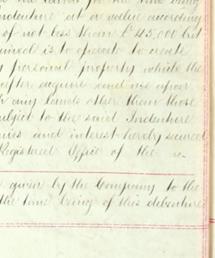 denture at a value according
of not less than £45,000 but
is to operate to create
personal property which the
after acquire and no
any lands other than those
subject to the said Indenture
and interest hereby secured
Registered Office of the
given by the Company to the
the time being of this debenture